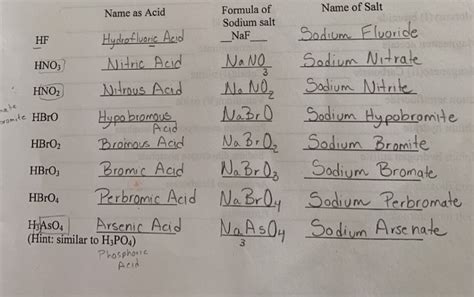 Name as Acid Formula of Sodium salt Name of Salt
HF Hydrofluoric Acid NaF Sodium Fluoride
HNO3 Nitric Acid NaNO3 Sodium Nitrate
HNO2 Nitrous Acid NaNO2 Sodium Nitrite
HBrO Hypobromous Acid NaBrO Sodium Hypobromite
HBrO2 Bromous Acid NaBrO2 Sodium Bromite
HBrO3 Bromic Acid NaBrO3 Sodium Bromate
HBrO4 Perbromic Acid NaBrO4 Sodium Perbromate
H3AsO4 Arsenic Acid Na3AsO4 Sodium Arsenate
(Hint: similar to H3PO4)
Phosphoric
Acid